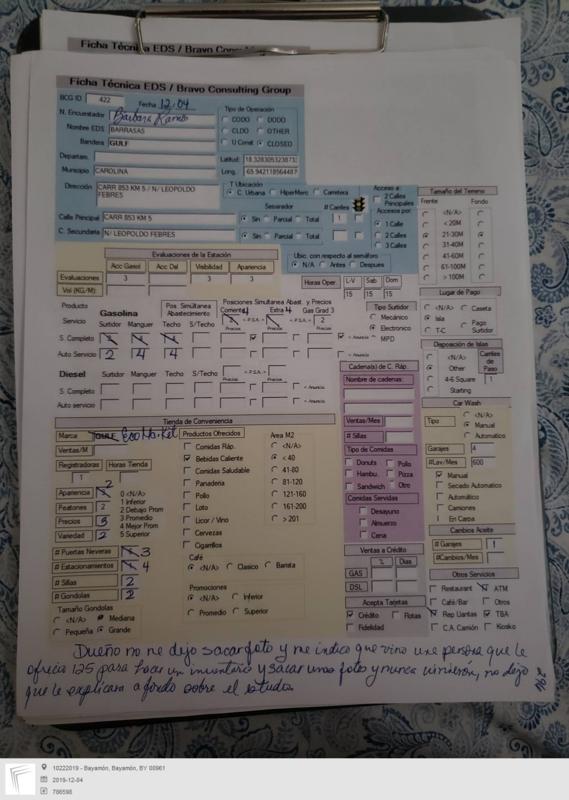 Ficha Técnica EDS / Bravo Cons
Ficha Técnica EDS / Bravo Consulting Group
BCG ID 422 Fecha 12.04
N. Encuestador Barbara Ramos
Nombre EDS BARRASAS
Bandera GULF
Departam.
Municipio CAROLINA
Dirección CARR 853 KM 5 / N/ LEOPOLDO FEBRES
Calle Principal CARR 853 KM 5
C. Secundaria N/ LEOPOLDO FEBRES
Tipo de Operación
CODO DODO
CLDO OTHER
U Const CLOSED
Latitud:
Long.
T Ubicación
C. Urbana HiperMerc Carretera
Separador # Carriles
Sin Parcial Total 1
Sin Parcial Total
Acceso a:
2 Calles Principales
Accesos por:
1 Calle
2 Calles
3 Calles
Ubic. con respecto al semáforo
N/A Antes Después
Tamaño del Terreno
Frente Fondo
<N/A>
< 20M
21-30M
31-40M
41-60M
61-100M
> 100M
Evaluaciones de la Estación
Acc Gasol Acc Del Visibilidad Apariencia
Evaluaciones 3 3 3
Vol (KG/M):
Horas Oper L-V Sab Dom
15 15 15
Lugar de Pago
<N/A> Caseta
Isla
T-C Pago Surtidor
Producto
Servicio
Gasolina
Surtidor Manguer Techo S/Techo
Pos. Simultanea Abastecimiento
Posiciones Simultanea Abast. y Precios
Corriente < P.S.A.> Extra < P.S.A.> Gas Grad 3
Precios Precios Precios
S. Completo
Auto Servicio 2 4 4
Tipo Surtidor
Mecánico
Electronico
MPD
Diesel Surtidor Manguer Techo S/Techo
S. Completo
Auto servicio
Disposición de Islas
<N/A>
Other
4-6 Square
Starting
Carriles de Paso
1
Cadena(s) de C. Ráp.
Nombre de cadenas:
Ventas/Mes
# Sillas
Tipo de Comidas
Donuts Pollo
Hambu. Pizza
Sandwich Otro
Comidas Servidas
Desayuno
Almuerzo
Cena
Car Wash
Tipo <N/A>
Manual
Automatico
Garajes 4
#Lav/Mes 600
Manual
Secado Automatico
Automático
Camiones
En Carpa
Cambios Aceite
# Garajes 1
#Cambios/Mes
Tienda de Conveniencia
Marca
Ventas/M
Registradoras Horas Tienda
1
Apariencia 2
Features 2
Precios 3
Variedad 2
0 <N/A>
1 Inferior
2 Debajo Prom
3 Promedio
4 Mejor Prom
5 Superior
# Puertas Neveras 3
# Estacionamientos 4
# Sillas 2
# Gondolas 2
Tamaño Gondolas
<N/A> Mediana
Pequeña Grande
Productos Ofrecidos
Comidas Ráp.
Bebidas Caliente
Comidas Saludable
Panaderia
Pollo
Loto
Licor / Vino
Cervezas
Cigarrillos
Area M2
<N/A>
< 40
41-80
81-120
121-160
161-200
> 201
Café
<N/A> Clasico Barista
Promociones
<N/A> Inferior
Promedio Superior
Ventas a Crédito
% Dias
GAS
DSL
Acepta Tarjetas
Crédito Flotas
Fidelidad
Otros Servicios
Restaurant ATM
Café/Bar Otros
Rep Llantas TBA
C.A. Camión Kiosko
Dueño no me dejo sacar foto y me indico que vino una persona que le
ofrecia 125 para hacer un inventario y sacar unas fotos y nunca vinieron, no dejo
que le explicara a fondo sobre el estudio.
10222019 - Bayamón, Bayamón, BY 00961
2019-12-04
786598